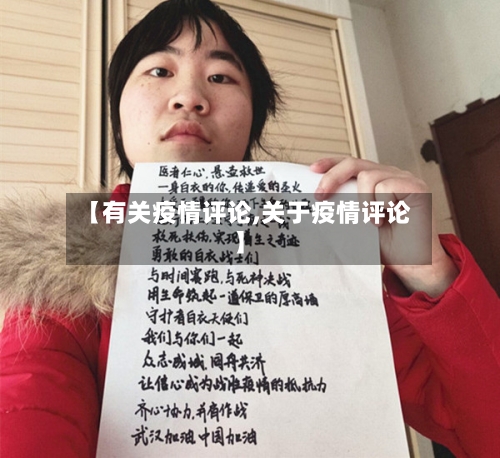 医者仁心,悬壶救世
一身白衣的你,传递爱的圣火
【有关疫情评论,关于疫情评论
】
救死扶伤,实现
生之奇迹
勇敢的白衣战士们
与时间赛跑,与死神决战
用生命筑起一道保卫的厚高墙
守护着白衣天使们
我们与你们一起
众志成城,同舟共济
让信心成为战胜疫情的抵抗力
齐心协力,并肩作战
武汉加油,中国加油